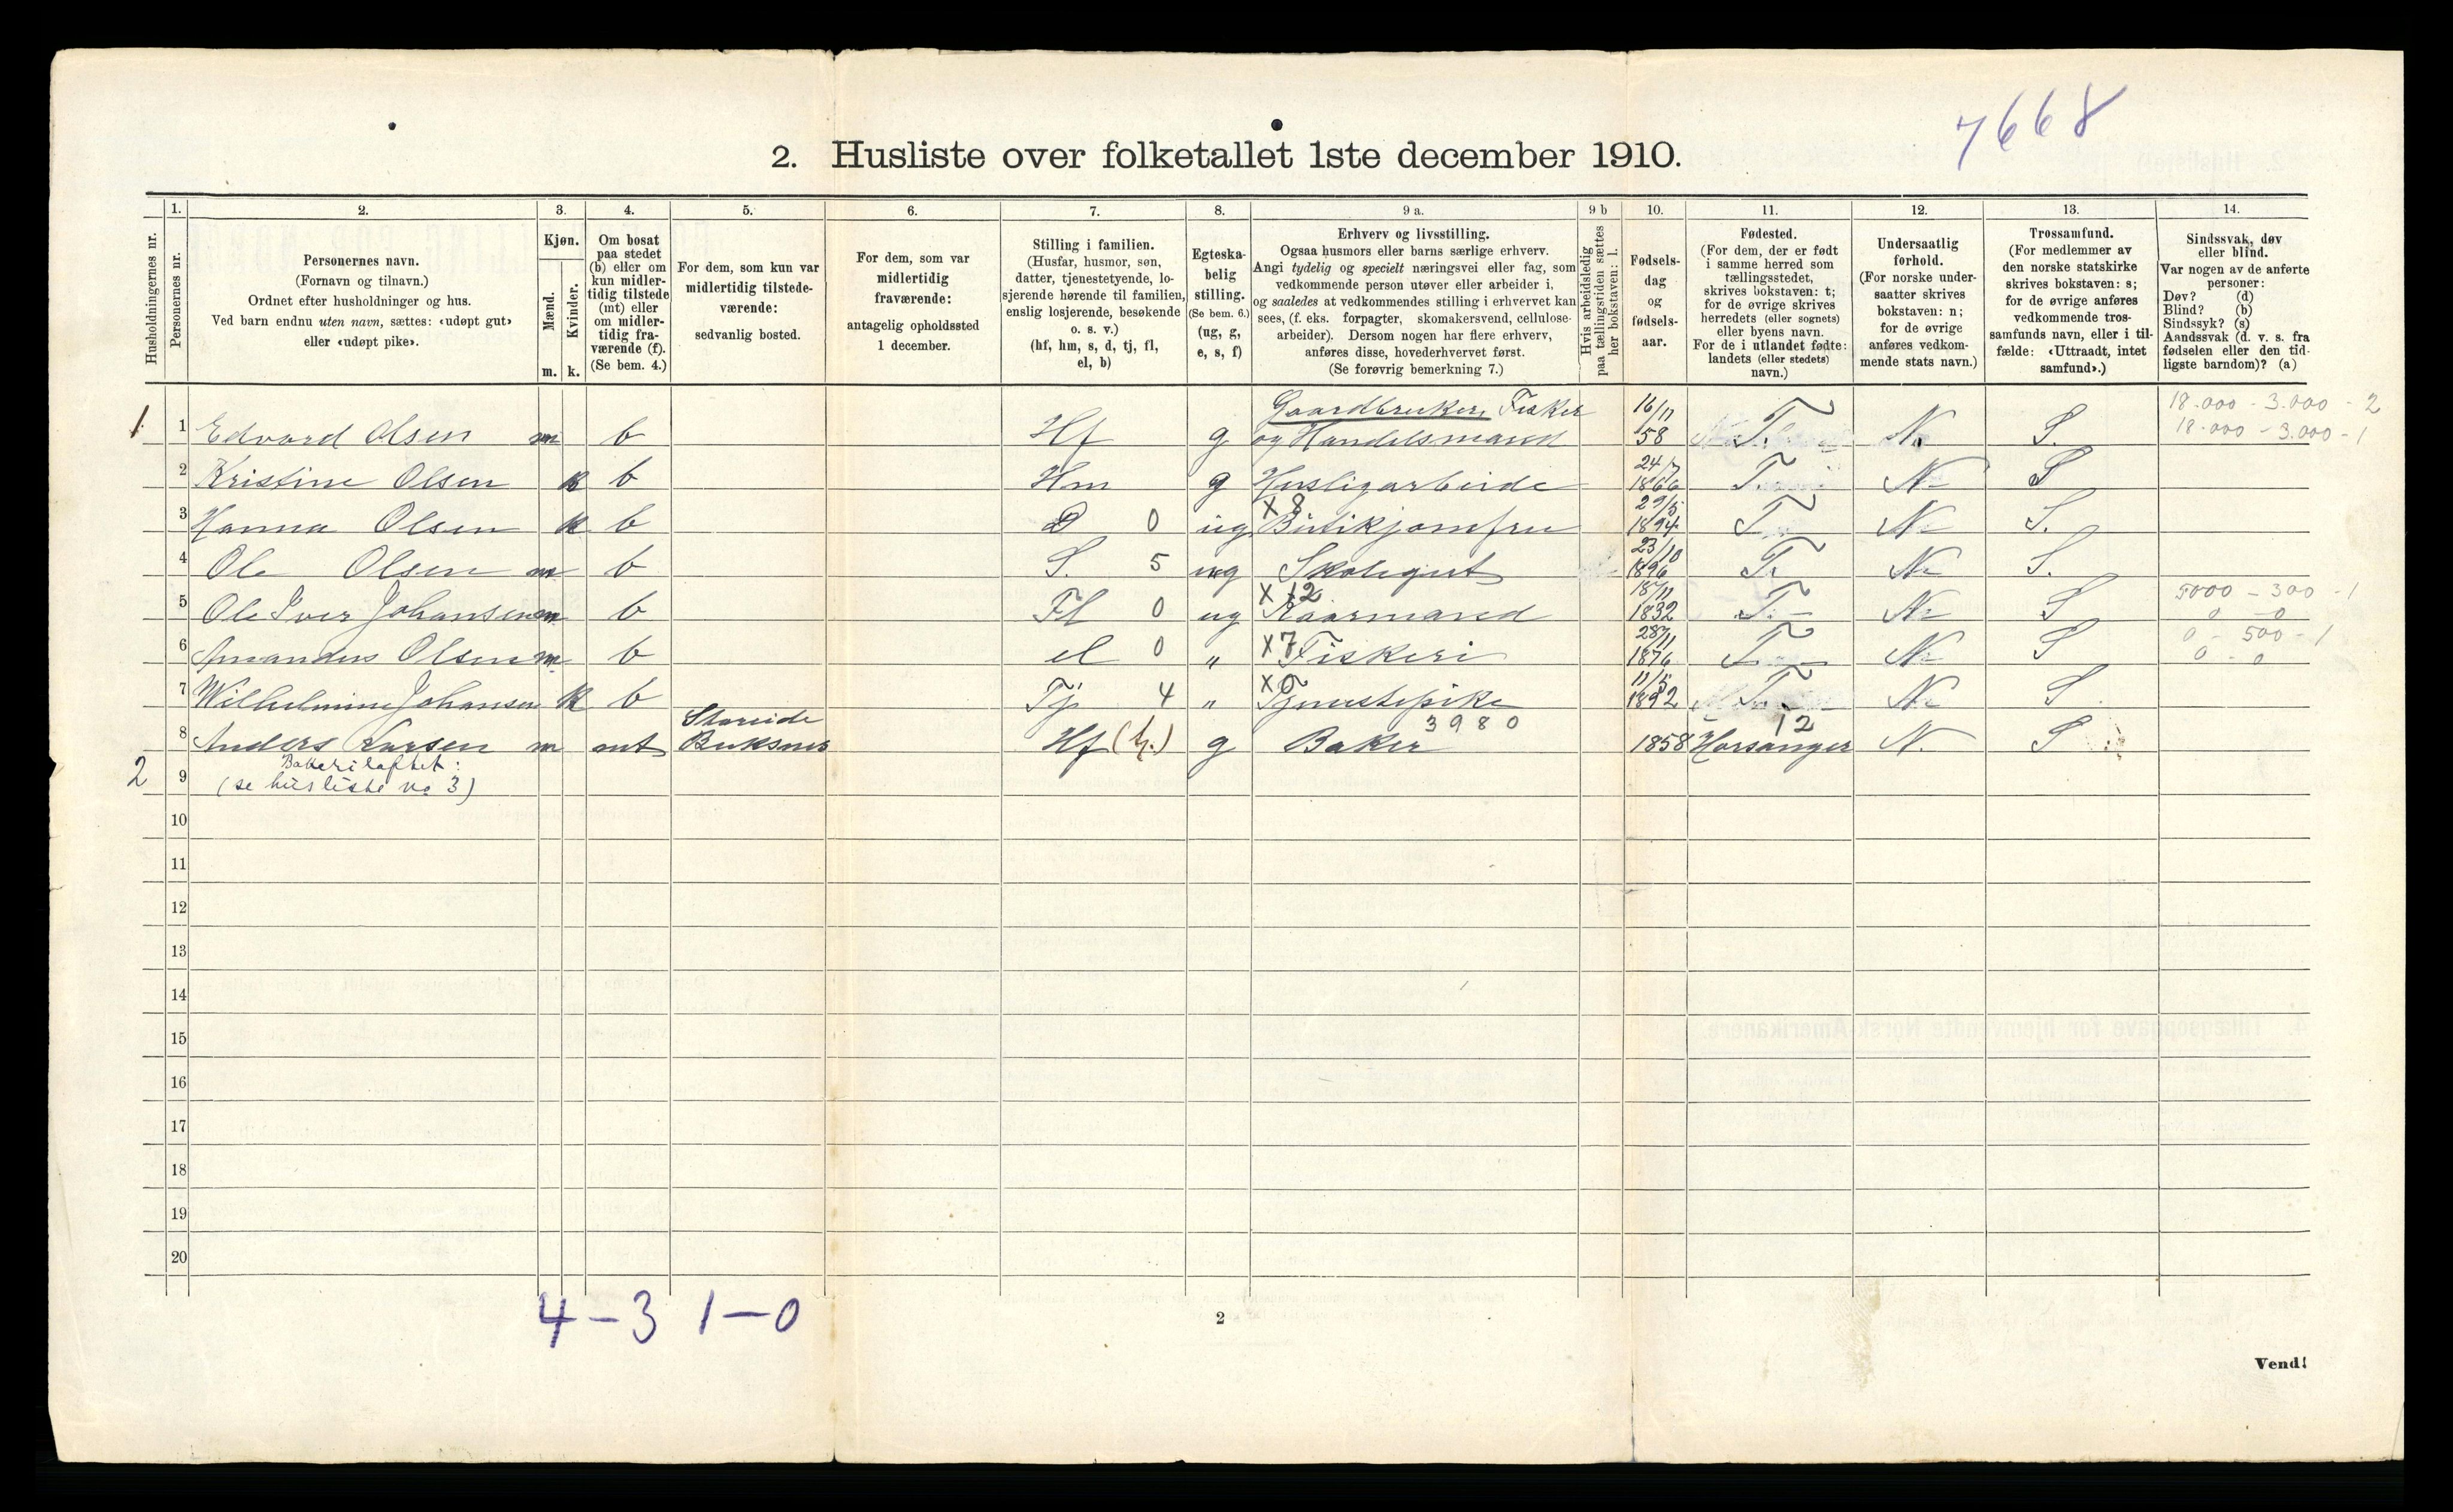 7668
2. Husliste over folketallet 1ste december 1910.
1. 2. 3. 4. 5. 6. 7. 8. 9 a. 9 b 10. 11. 12. 13. 14.
Husholdningernes nr.
Personernes nr.
Personernes navn.
(Fornavn og tilnavn.)
Ordnet efter husholdninger og hus.
Ved barn endnu uten navn, sættes: «udøpt gut»
eller «udøpt pike».
Kjøn.
Mænd.
Kvinder.
m. k.
Om bosat
paa stedet
(b) eller om
kun midler-
tidig tilstede
(mt) eller
om midler-
tidig fra-
værende (f).
(Se bem. 4.)
For dem, som kun var
midlertidig tilstede-
værende:
sedvanlig bosted.
For dem, som var
midlertidig
fraværende:
antagelig opholdssted
1 december.
Stilling i familien.
(Husfar, husmor, søn,
datter, tjenestetyende, lo-
sjerende hørende til familien,
enslig losjerende, besøkende
o. s. v.)
(hf, hm, s, d, tj, fl,
el, b)
Egteska-
belig
stilling.
(Se bem. 6.)
(ug, g,
e, s, f)
Erhverv og livsstilling.
Ogsaa husmors eller barns særlige erhverv.
Angi tydelig og specielt næringsvei eller fag, som
vedkommende person utøver eller arbeider i,
og saaledes at vedkommendes stilling i erhvervet kan
sees, (f. eks. forpagter, skomakersvend, cellulose-
arbeider). Dersom nogen har flere erhverv,
anføres disse, hovederhvervet først.
(Se forøvrig bemerkning 7.)
Hvis arbeidsledig
paa tællingstiden sættes
her bokstaven: l.
Fødsels-
dag
og
fødsels-
aar.
Fødested.
(For dem, der er født
i samme herred som
tællingsstedet,
skrives bokstaven: t;
for de øvrige skrives
herredets (eller sognets)
eller byens navn.
For de i utlandet fødte:
landets (eller stedets)
navn.)
Undersaatlig
forhold.
(For norske under-
saatter skrives
bokstaven: n;
for de øvrige
anføres vedkom-
mende stats navn.)
Trossamfund.
(For medlemmer av
den norske statskirke
skrives bokstaven: s;
for de øvrige anføres
vedkommende tros-
samfunds navn, eller i til-
fælde: «Uttraadt, intet
samfund».)
Sindssvak, døv
eller blind.
Var nogen av de anførte
personer:
Døv? (d)
Blind? (b)
Sindssyk? (s)
Aandssvak (d. v. s. fra
fødselen eller den tid-
ligste barndom)? (a)
Gaardbruker, Fisker 16/11 18.000 - 3.000 - 2
1 1 Edvard Olsen m b Hf g og Handelsmand 58 T. N. S. 18.000 - 3.000 - 1
24/7
2 Kristine Olsen k b Hm g Husligarbeide 1866 T N S
X 8 29/5
3 Hanna Olsen k b D 0 ug Butikjomfru 1894 T N S.
23/10
4 Ole Olsen m b S. 5 ug Skolegut 1896 T. N S.
X 12 18/11 5000 - 300 - 1
5 Ole Iver Johansen m b Fl 0 ug Kaarmand 1832 T. N S 0 - 0
28/11 0 - 500 - 1
6 Amandus Olsen m b el 0 „ X7 Fiskeri 1876 T N S 0 - 0
X 0 11/5
7 Wilhelmine Johansen k b Tj 4 „ Tjenestepike 1892 T N S
3980 12
8 Anders Larsen m mt Buksnes Hf (h.) g Baker 1858 Horsanger N. S
2 9 Bakeriloftet:
(se husliste no 3)
10
11
12
13
14
15
16
17
18
19
20
4 - 3 1 - 0
2
Vend!